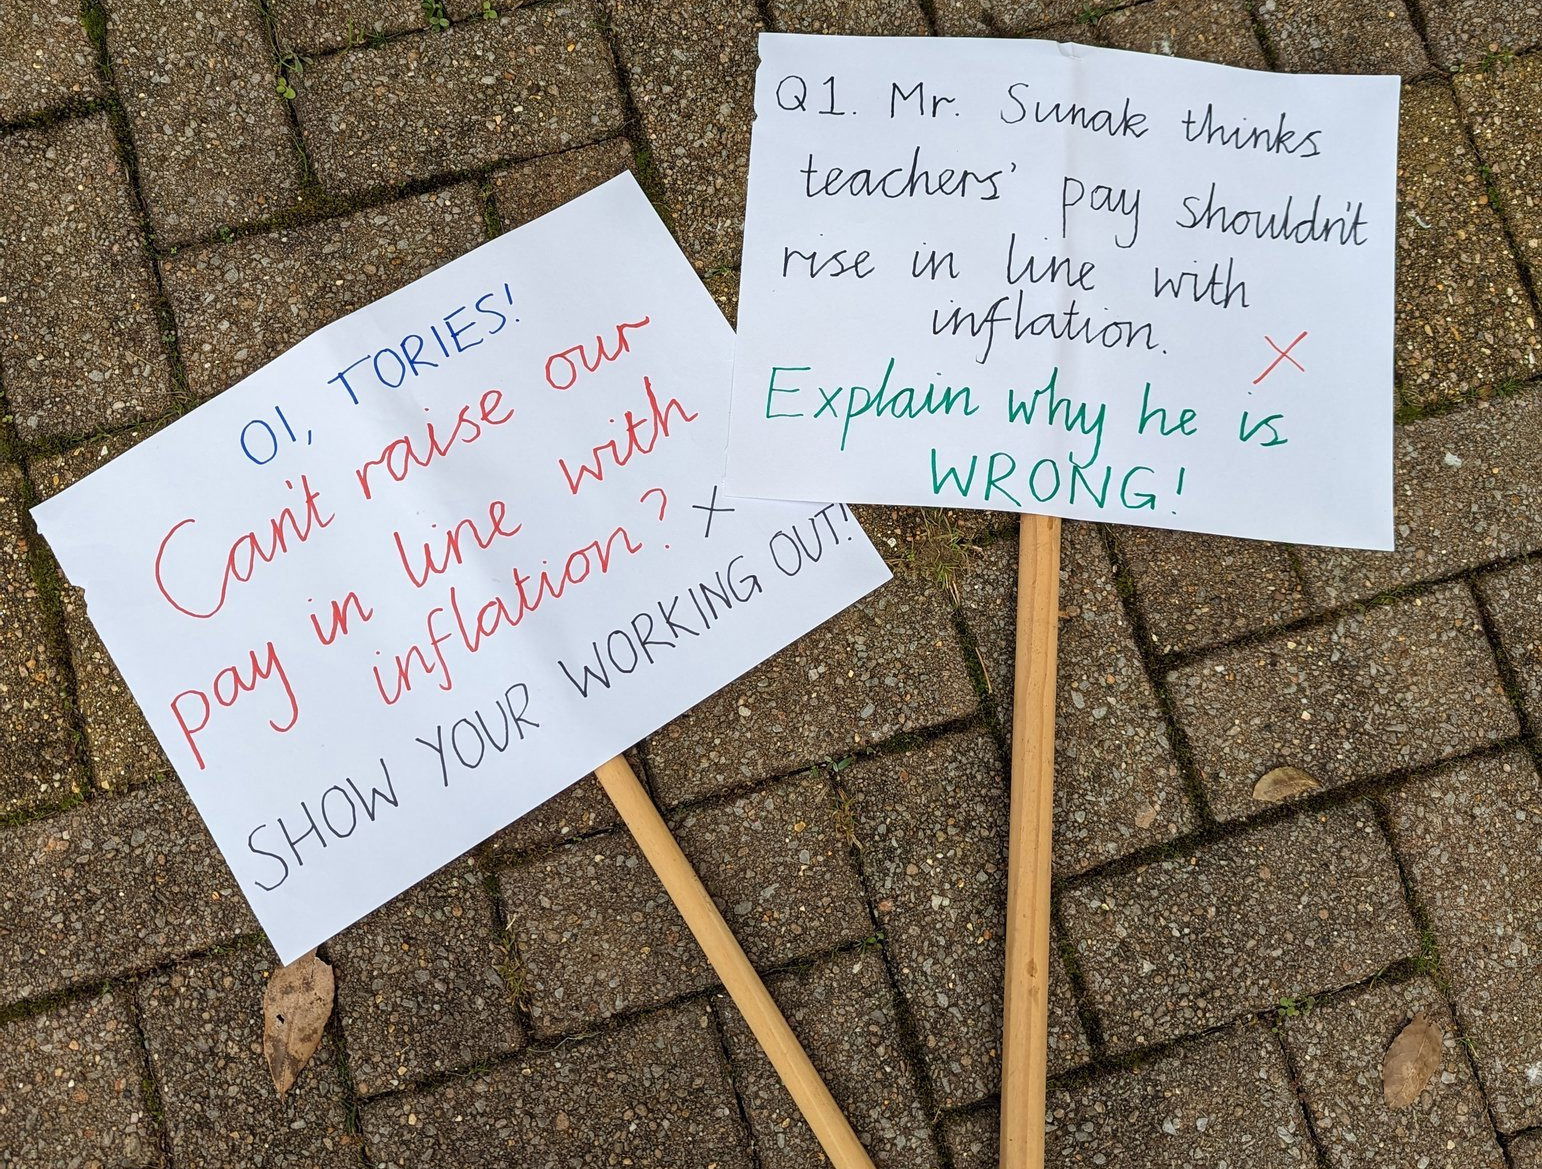 OI, TORIES!
Can't raise our
pay in line with
inflation? X
SHOW YOUR WORKING OUT!
Q1. Mr. Sunak thinks
teachers' pay shouldn't
rise in line with
inflation. X
Explain why he is
WRONG!